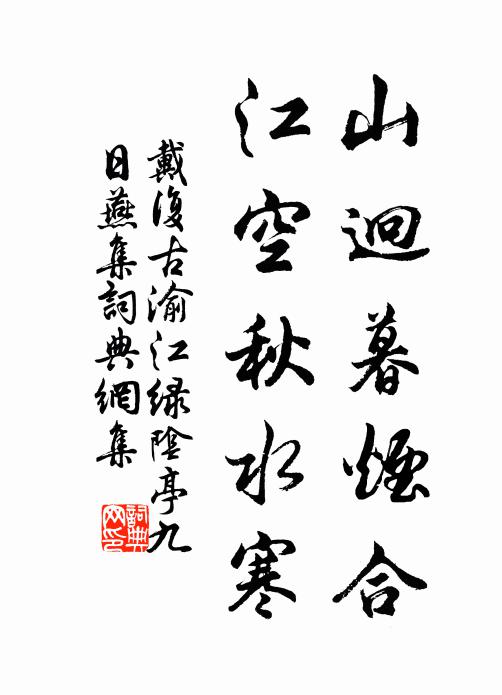 山迥暮煙合
江空秋水寒
戴復古渝江緑陰亭九
日燕集詞典網集
詞典
网印